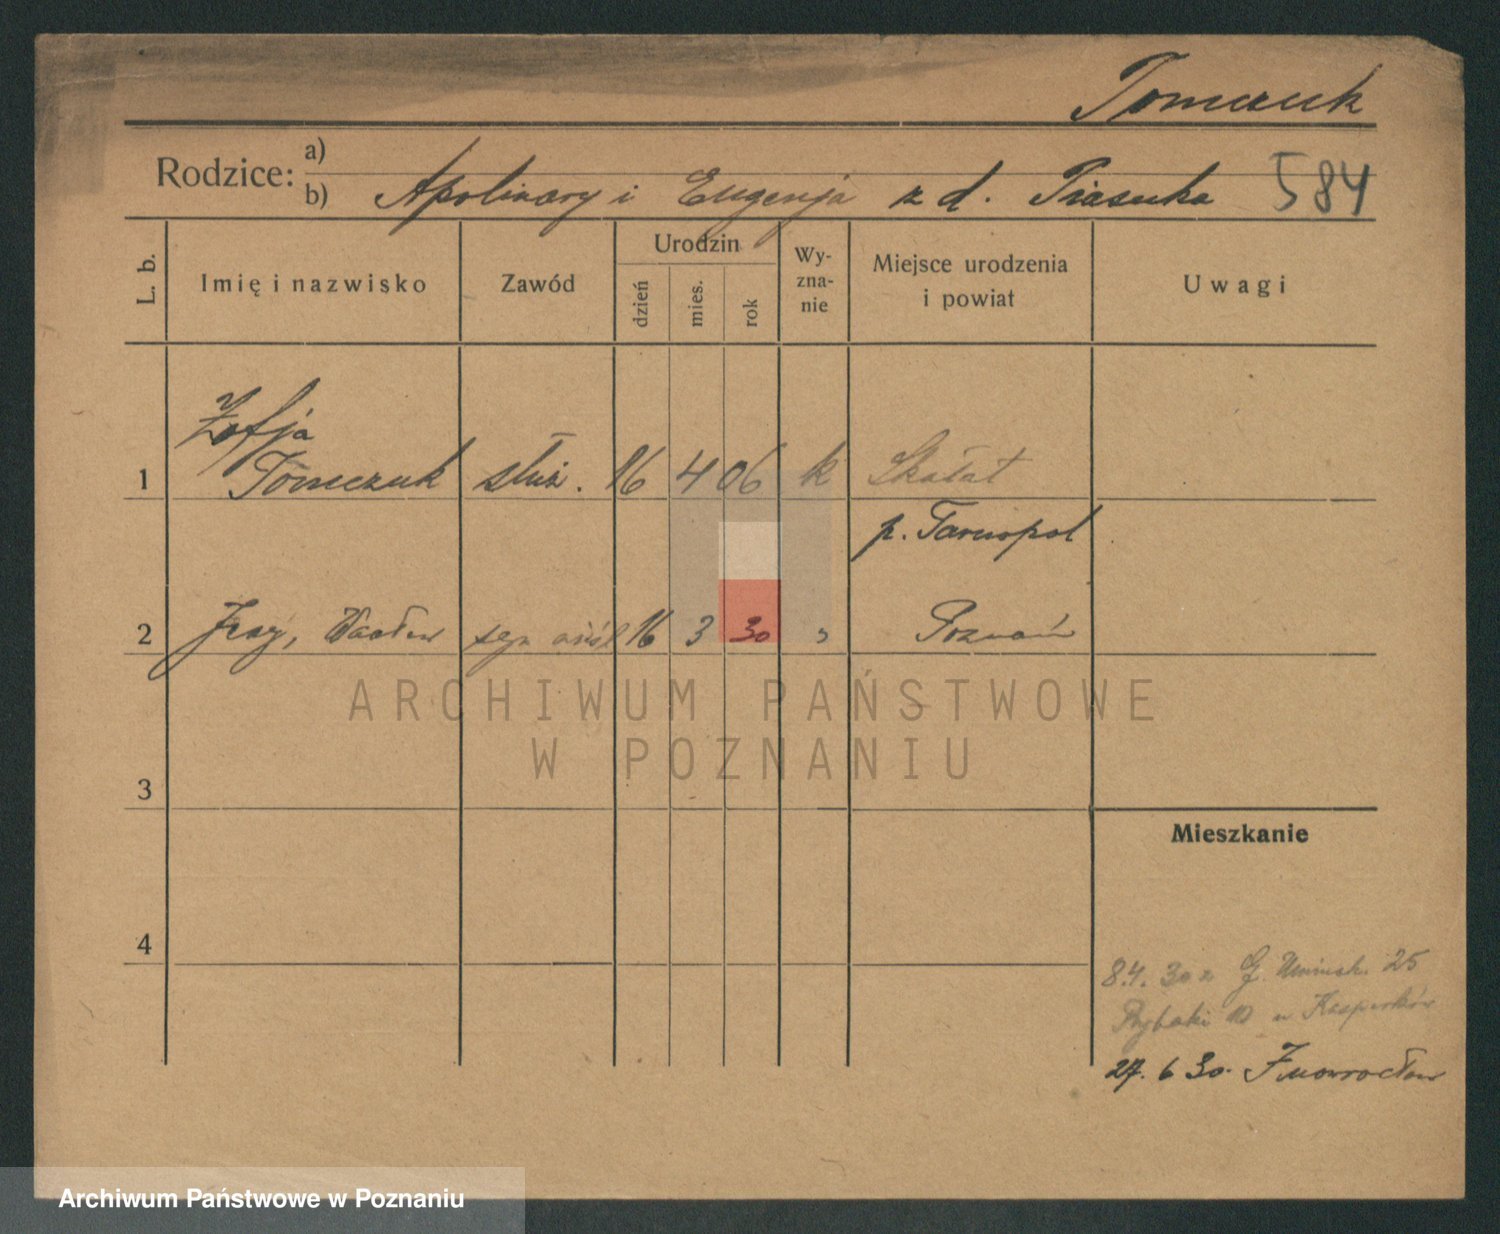 Tomczuk
Rodzice: a)
b) Apolinary i Eugenja z d. Piasecka 584
L. b. Imię i nazwisko Zawód Urodzin dzień mies. rok Wy-zna-nie Miejsce urodzenia i powiat Uwagi
Zofja
1 Tomczuk służ. 16 4 06 k Skałat
p. Tarnopol
2 Jerzy, Wacław syn 16 3 30 Poznań
ARCHIWUM PAŃSTWOWE
W POZNANIU
3
Mieszkanie
4
8.4.30 z G. Umińsk. 25
Rybaki 10 u
27. 6 30. Inowrocław
Archiwum Państwowe w Poznaniu